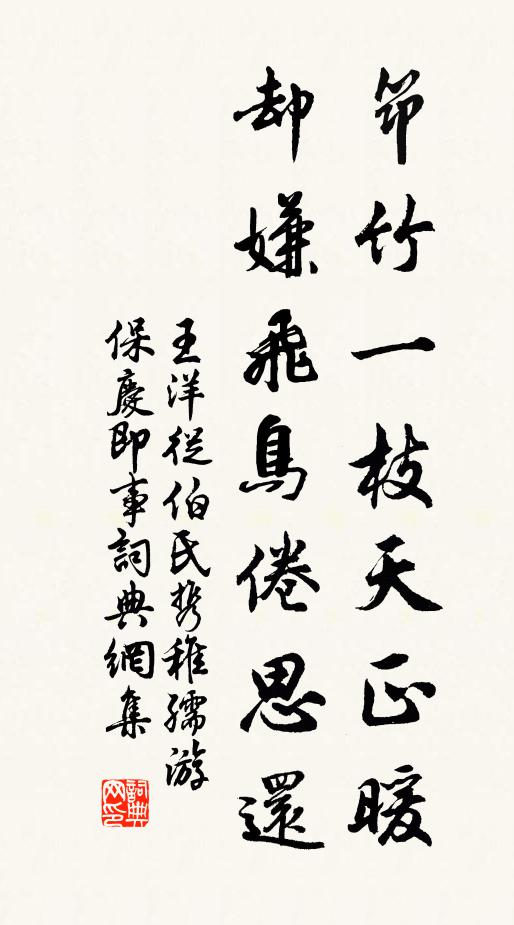 筇竹一枝天正暖
却嫌飛鳥倦思還
王洋從伯氏攜稚孺游
保慶即事詞典網集
詞典
网印